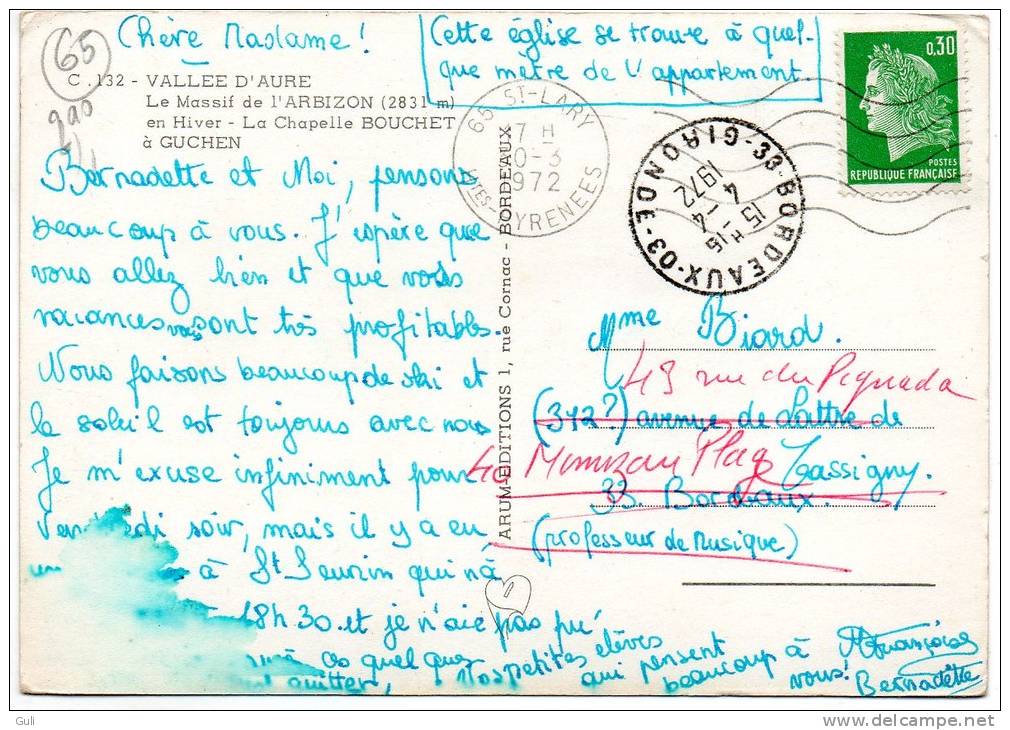 65
Chère Madame !
[Cette église se trouve à quel-
que mètre de l'appartement.]
C. 132 - VALLEE D'AURE
Le Massif de l'ARBIZON (2831 m)
en Hiver - La Chapelle BOUCHET
à GUCHEN
0,30
POSTES
REPUBLIQUE FRANÇAISE
65 ST-LARY
7 H
0-3
1972
PYRENEES
33-BORDEAUX-03-GIRONDE
15 H 15
4 - 4
1972
Bernadette et Moi, pensons
beaucoup à vous. J'espère que
vous allez bien et que vos
vacances vous sont très profitables.
Nous faisons beaucoup de ski et
le soleil est toujours avec nous
Je m'excuse infiniment pour
Vendredi soir, mais il y a eu
à St Seurin qui n'a
18h30 et je n'aie pas pu
ces quelques
quitter,
Vos petites élèves
qui pensent
beaucoup à
vous!
Françoise
Bernadette
ARUM-EDITIONS 1, rue Cornac - BORDEAUX
Mme Biard.
43 rue du Pignada
(372?) avenue de Lattre de
40 Mimizan Plage
Tassigny.
33. Bordeaux.
(professeur de Musique)
Guli
www.delcampe.net